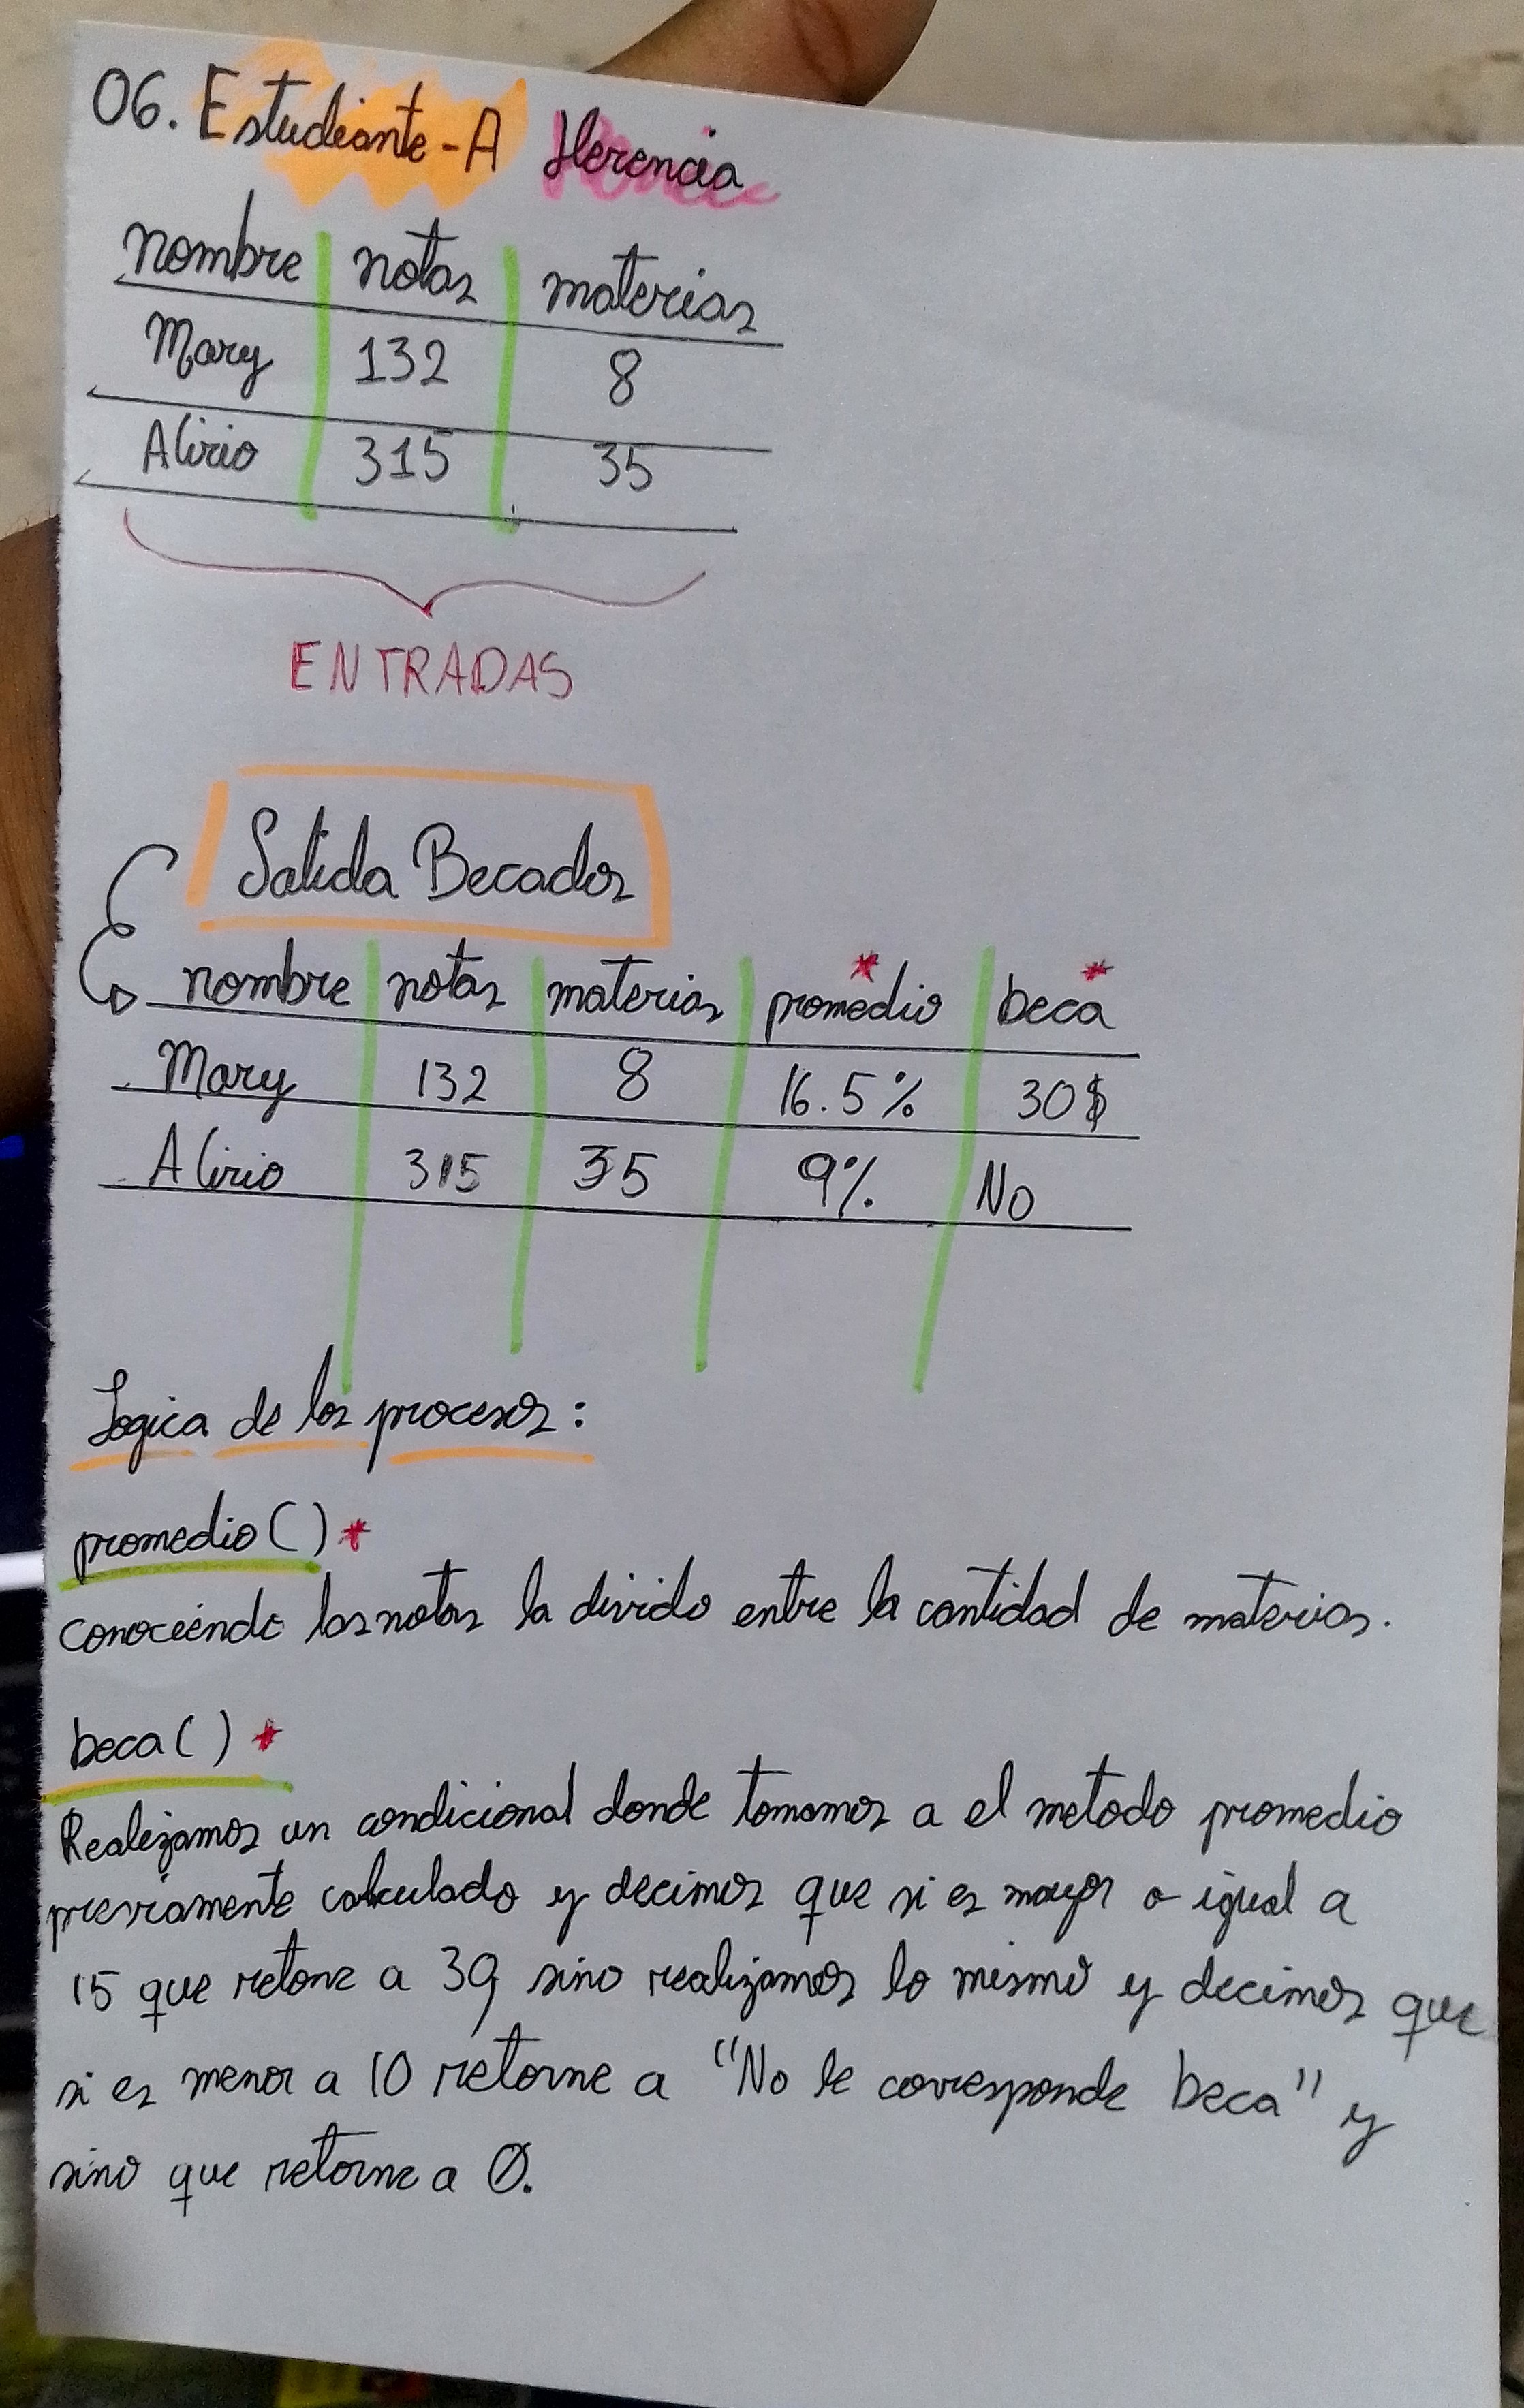 06. Estudiante-A Herencia
nombre notas materias
Mary 132 8
Alirio 315 35
ENTRADAS
Salida Becados
nombre notas materias promedio* beca*
Mary 132 8 16.5% 30$
Alirio 315 35 9% No
Logica de los procesos:
promedio()*
conociendo las notas la divido entre la cantidad de materias.
beca()*
Realizamos un condicional donde tomamos a el metodo promedio
previamente calculado y decimos que si es mayor o igual a
15 que retone a 30, sino realizamos lo mismo y decimos que
si es menor a 10 retorne a "No le corresponde beca" y
sino que retorne a 0.